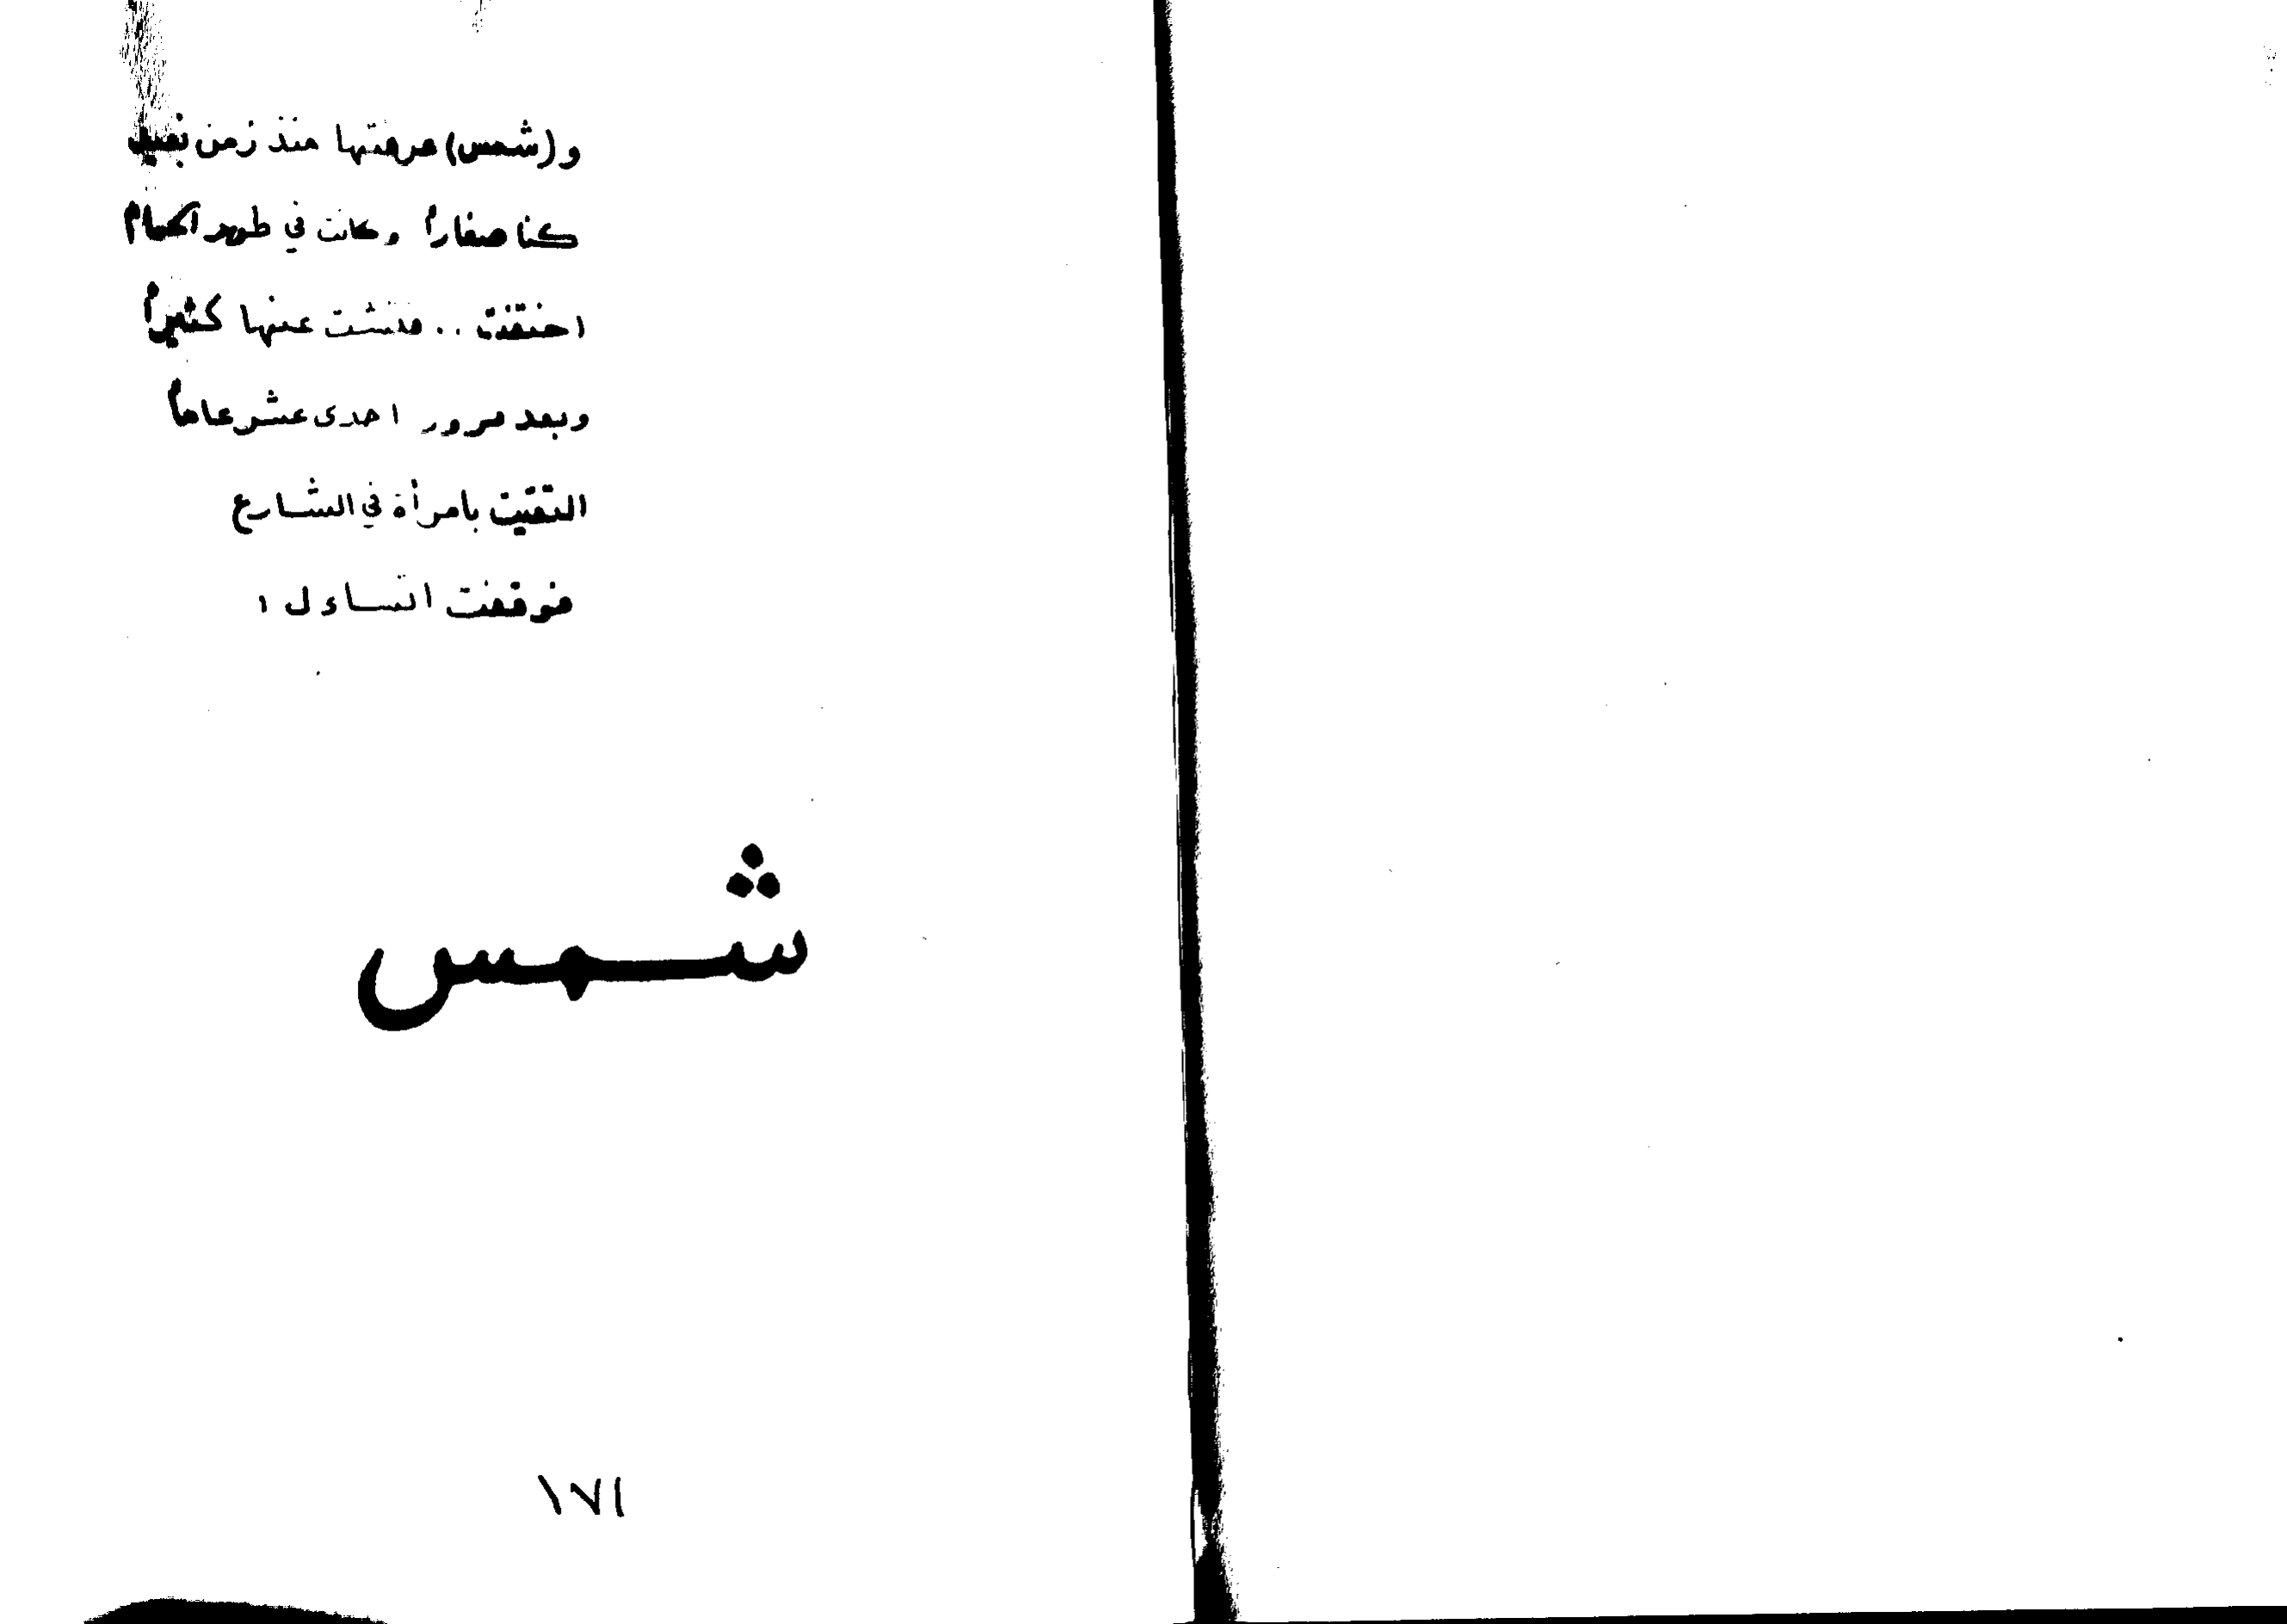 و(شمس) عرفتها منذ زمن بعيد
كنا صغاراً وكانت في طهر الحمام
اختفت .. فتشت عنها كثيراً
وبعد مرور احدى عشر عاماً
التقيت بامرأة في الشارع
فوقفت اتساءل :
شمس
١٧١